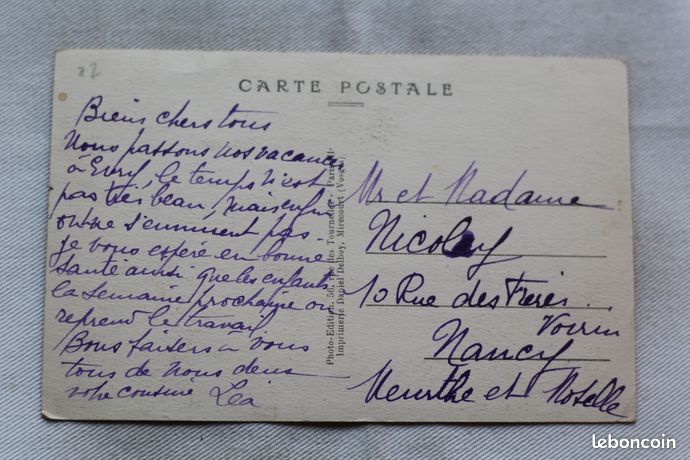 22
CARTE POSTALE
Biens chers tous
Nous passons nos vacances
à Evry, le temps n'est
pas très beau, mais enfin
on ne s'ennuient pas
je vous espère en bonne
santé ainsi que les enfants
la semaine prochaine on
reprend le travail
Bons baisers à vous
tous de nous deux
votre cousine Léa
Photo-Edition, 56, rue des Tournelles - Paris-III
Imprimerie Daniel Delboy, Mirecourt (Vosges)
Mr et Madame
Nicolay
10 Rue des Frères
Voirin
Nancy
Meurthe et Moselle
leboncoin